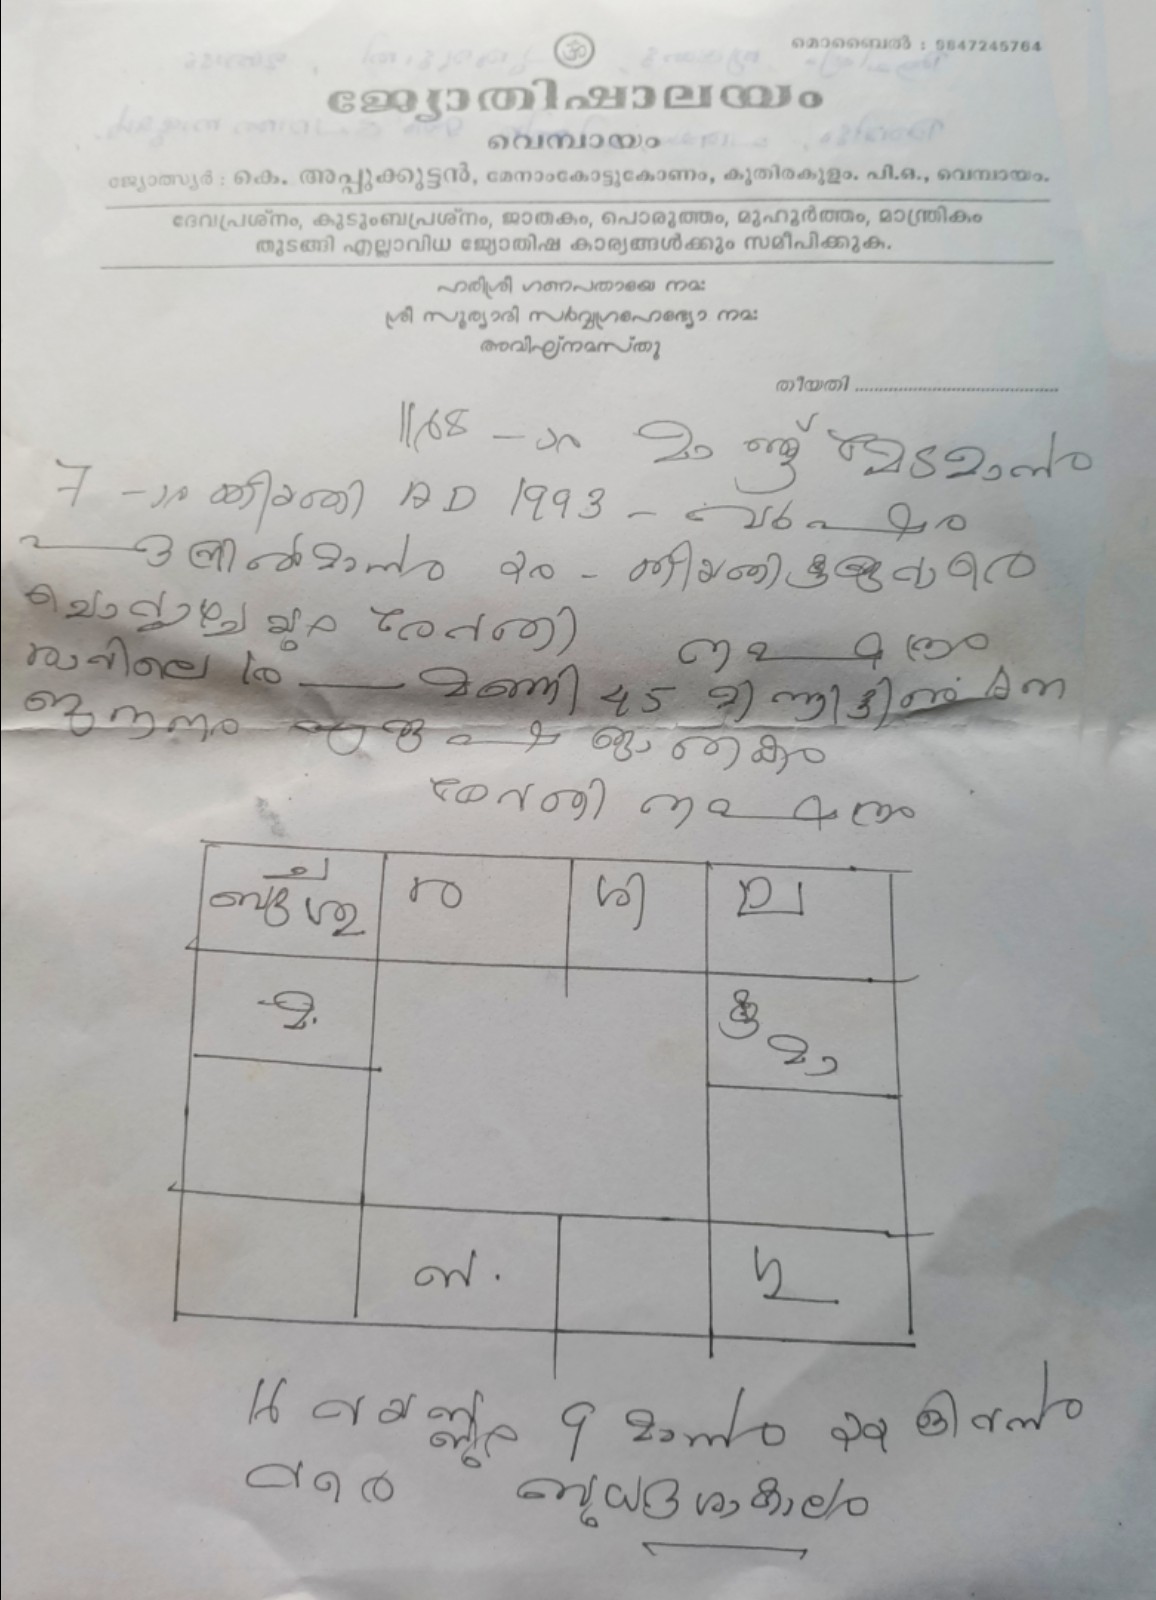 മൊബൈൽ : 9847245764
ജ്യോതിഷാലയം
വെമ്പായം
ജ്യോത്സ്യർ : കെ. അപ്പുക്കുട്ടൻ, മേനാംകോട്ടുകോണം, കുതിരകുളം. പി.ഒ., വെമ്പായം.
ദേവപ്രശ്നം, കുടുംബപ്രശ്നം, ജാതകം, പൊരുത്തം, മുഹൂർത്തം, മാന്ത്രികം
തുടങ്ങി എല്ലാവിധ ജ്യോതിഷ കാര്യങ്ങൾക്കും സമീപിക്കുക.
ഹരിശ്രീ ഗണപതായെ നമഃ
ശ്രീ സൂര്യാദി സർവ്വഗ്രഹേഭ്യോ നമഃ
അവിഘ്നമസ്തു
തീയതി
1168 - ാം മാണ്ട് മേടമാസം
7 - ാം തീയതി AD 1993 - വർഷം
ഏപ്രിൽമാസം 20 - തീയതി
ചൊവ്വാഴ്ചയും രേവതി നക്ഷത്രം
രാവിലെ 10 മണി 45 മിനിട്ടിന്
ജനനം ജാതകം
രേവതി നക്ഷത്രം
ച
ബു ശു ര ശി ല
മ. കു
മാ
സ. ഗു
16 വയസ്സും 9 മാസം 22 ദിവസം
വരെ ബുധദശാകാലം